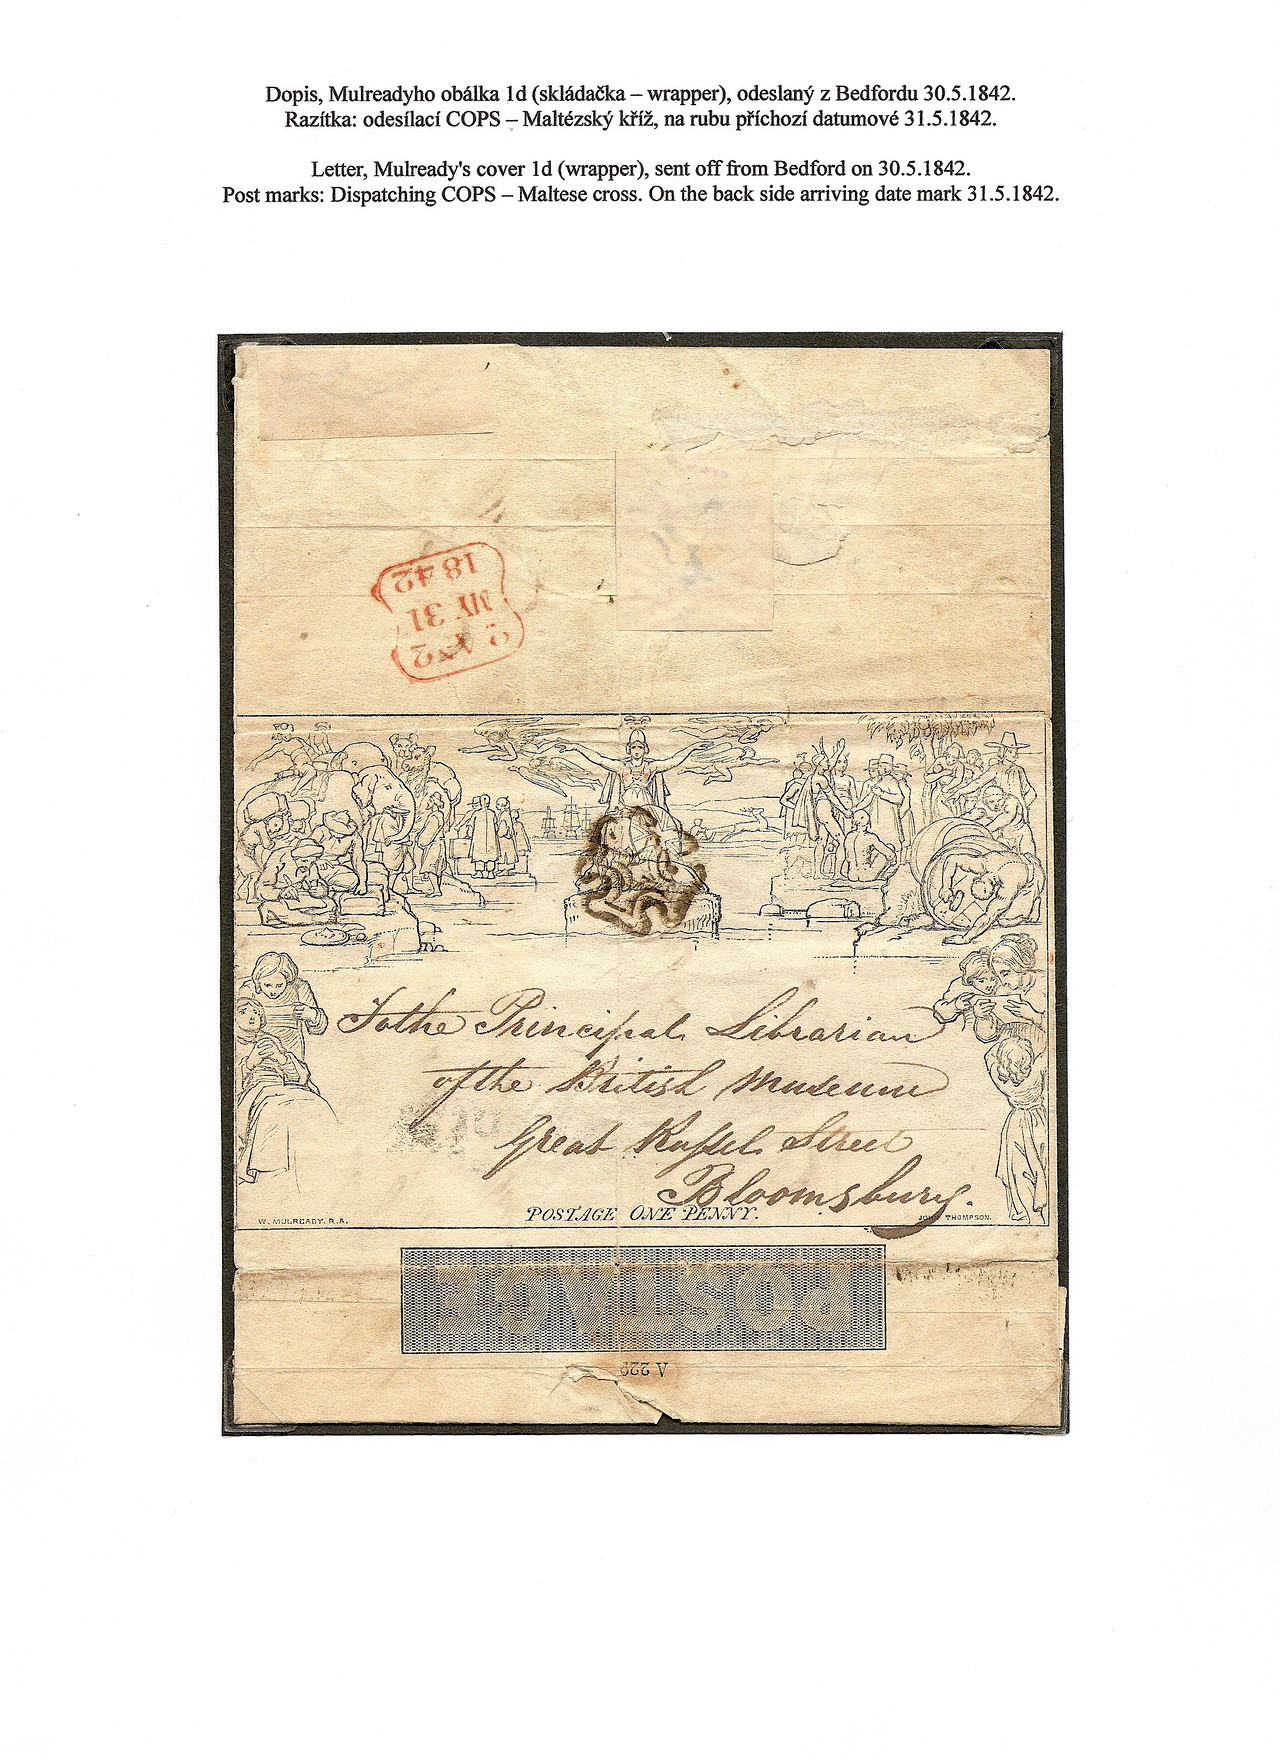 Dopis, Mulreadyho obálka 1d (skládačka – wrapper), odeslaný z Bedfordu 30.5.1842.
Razítka: odesílací COPS – Maltézský kříž, na rubu příchozí datumové 31.5.1842.
Letter, Mulready's cover 1d (wrapper), sent off from Bedford on 30.5.1842.
Post marks: Dispatching COPS – Maltese cross. On the back side arriving date mark 31.5.1842.
MY 31
1842
To the Principal Librarian
of the British Museum
Great Russel Street
Bloomsbury.
POSTAGE ONE PENNY.
W. MULREADY, R.A.
JOHN THOMPSON.
POSTAGE
A 229